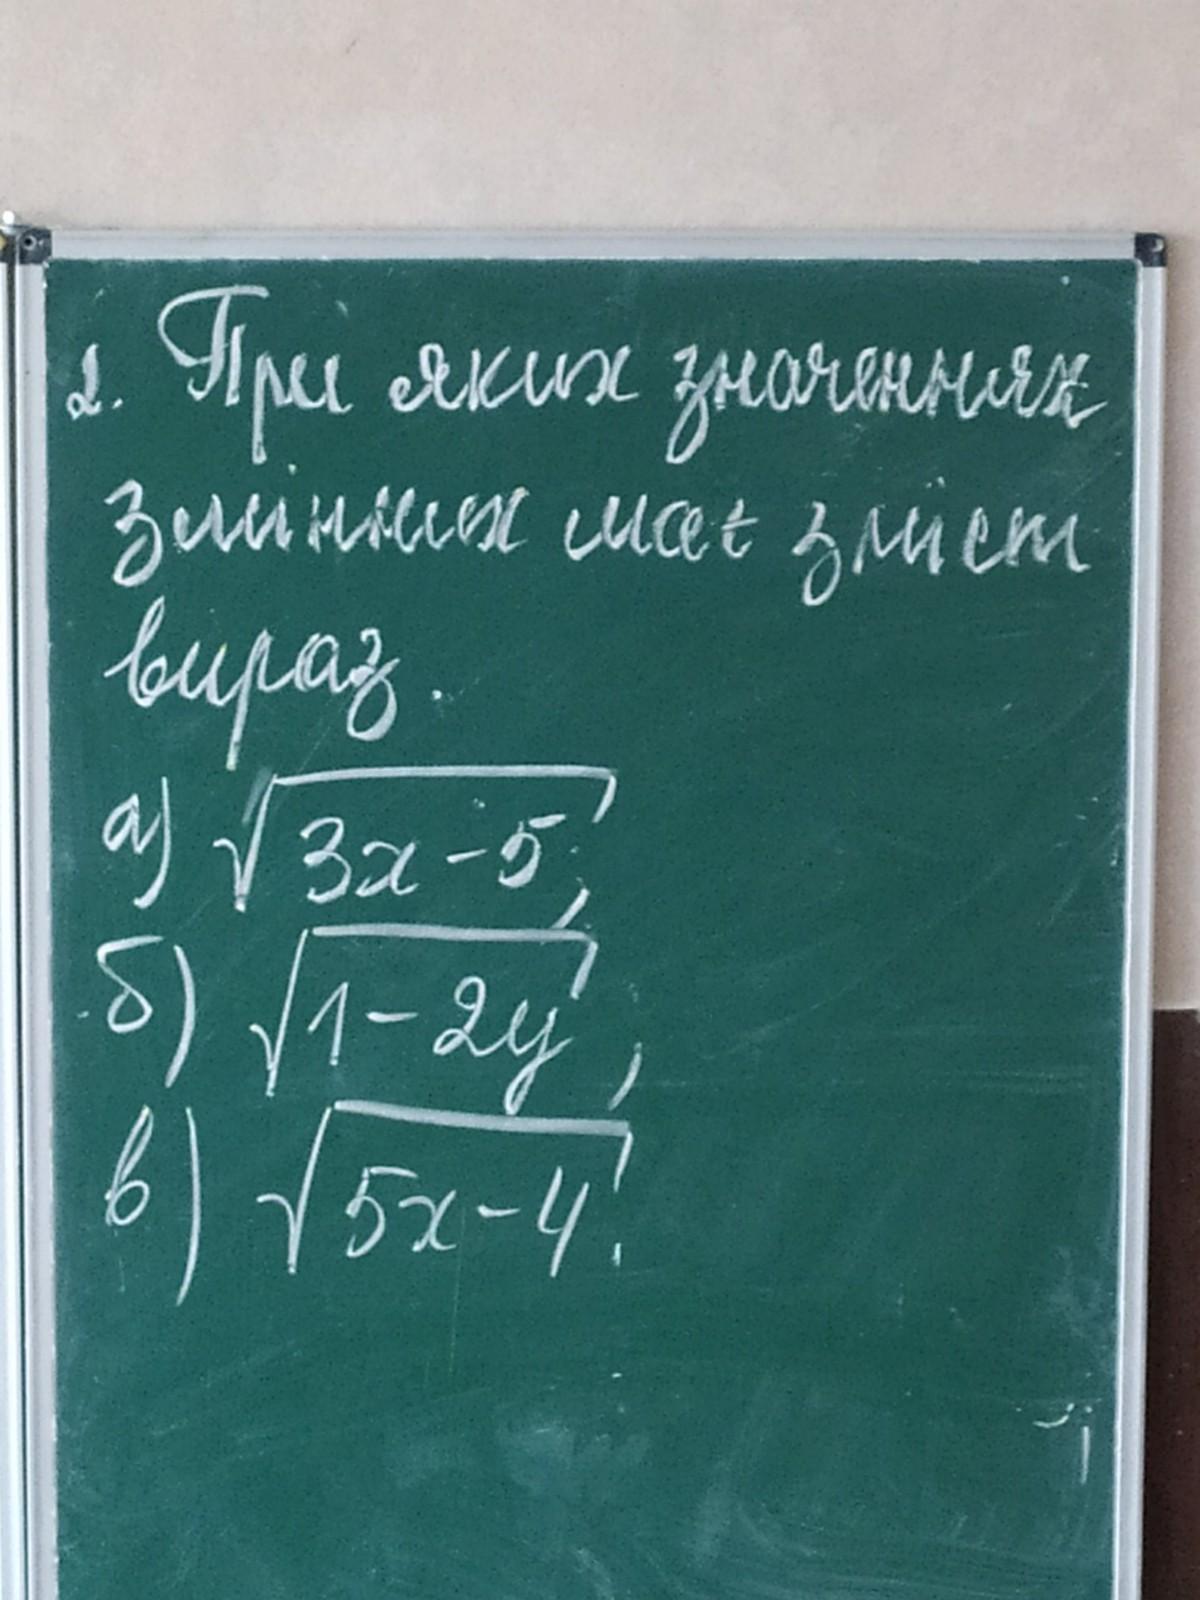 2. При яких значеннях
змінних має зміст
вираз.
а) √3x-5,
б) √1-2y,
в) √5x-4.